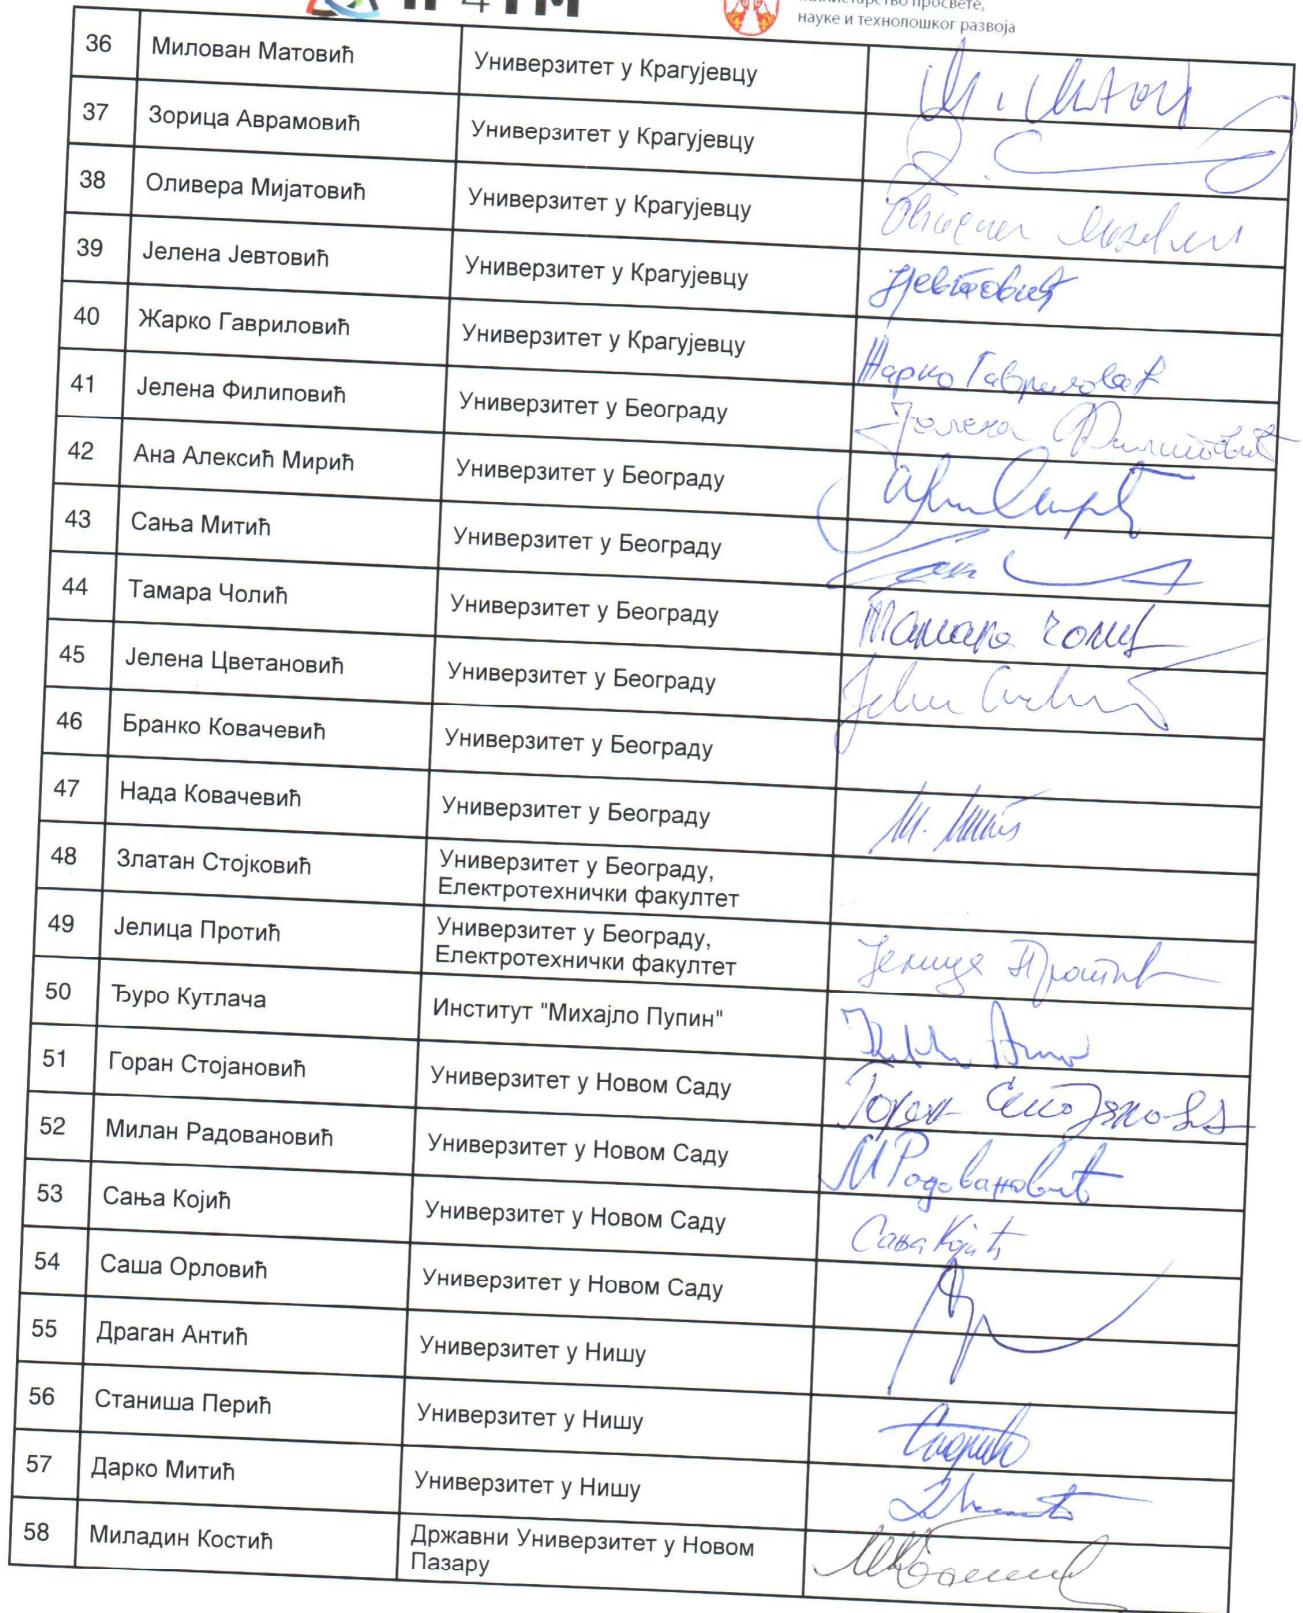 науке и технолошког развоја
36 Милован Матовић Универзитет у Крагујевцу
37 Зорица Аврамовић Универзитет у Крагујевцу
38 Оливера Мијатовић Универзитет у Крагујевцу
39 Јелена Јевтовић Универзитет у Крагујевцу Јевтовић
40 Жарко Гавриловић Универзитет у Крагујевцу Жарко Гавриловић
41 Јелена Филиповић Универзитет у Београду Јелена Филиповић
42 Ана Алексић Мирић Универзитет у Београду
43 Сања Митић Универзитет у Београду
44 Тамара Чолић Универзитет у Београду Тамара Чолић
45 Јелена Цветановић Универзитет у Београду
46 Бранко Ковачевић Универзитет у Београду
47 Нада Ковачевић Универзитет у Београду
48 Златан Стојковић Универзитет у Београду,
Електротехнички факултет
49 Јелица Протић Универзитет у Београду, Јелица Протић
Електротехнички факултет
50 Ђуро Кутлача Институт "Михајло Пупин"
51 Горан Стојановић Универзитет у Новом Саду Горан
52 Милан Радовановић Универзитет у Новом Саду М Радовановић
53 Сања Којић Универзитет у Новом Саду Сања Којић
54 Саша Орловић Универзитет у Новом Саду
55 Драган Антић Универзитет у Нишу
56 Станиша Перић Универзитет у Нишу
57 Дарко Митић Универзитет у Нишу
58 Миладин Костић Државни Универзитет у Новом
Пазару